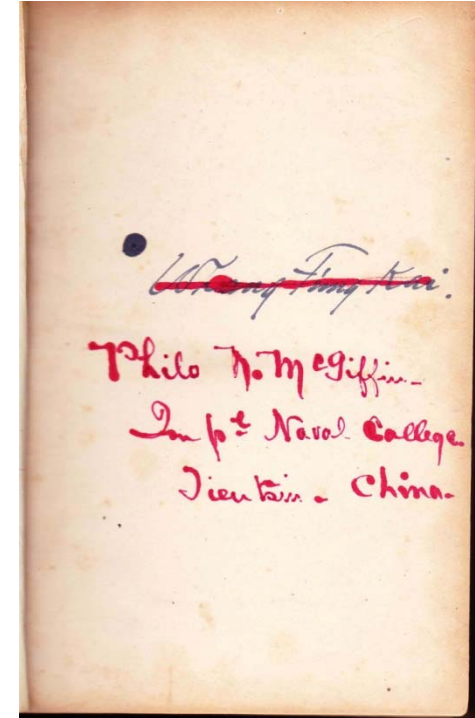 Whang Fung Kai.
Philo N. McGiffin-
Imp'l Naval College.
Tientsin - China-